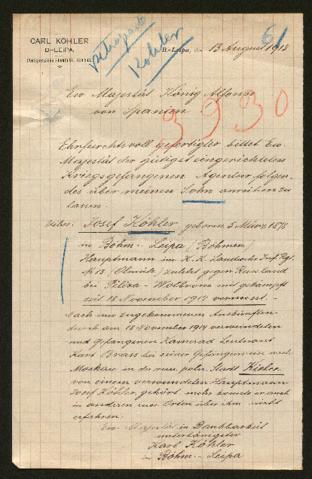 CARL KÖHLER
B.-LEIPA,
B.-Leipa, den 13 August 1918
6
retropado
Köhler
3930
Euer Majestät König Alfonso
von Spanien
Ehrfurchtsvoll Gefertigter bittet Eu.
Majestät der gütigst eingerichteten
Kriegsgefangenen Agentur folgen-
des über meinen Sohn anraten zu
lassen.
Josef Köhler, geboren 5 März 1878
in Böhm.- Leipa (Böhmen)
Hauptmann im K.K. Landwehr Inf. Rgt.
№ 13 /Olmütz/ zuletzt gegen Russland
bei Pilica - Wolbrom mitgekämpft
seit 18 November 1914 vermisst.
Nach uns zugekommenen Auskünften
durch am 18 November 1914 verwundeten
und gefangenen Kamerad Leutnant
Karl Brass bei seiner Gefangennahme nach
Moskau in der russ. poln. Stadt Kielce
von einem verwundeten Hauptmann
Josef Köhler, gehört mehr konnte er auch
in anderen russ. Orten über ihn nicht
erfahren.
Eu. Majestät in Dankbarkeit
untertänigster
Karl Köhler
in Böhm.- Leipa